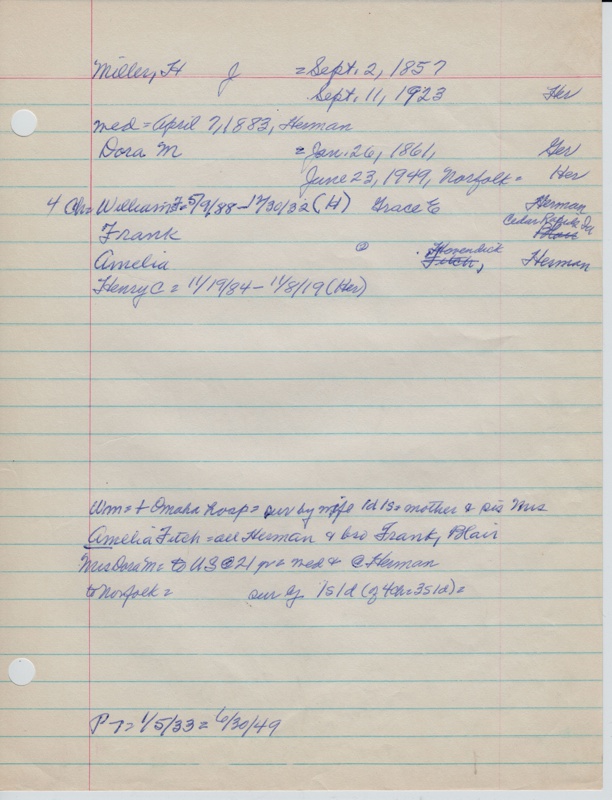 Miller, H J = Sept. 2, 1857
Sept. 11, 1923 Her
med = April 7, 1883, Herman
Dora M = Jan. 26, 1861, Ger
June 23, 1949, Norfolk = Her
4 Ch = William F = 5/9/88 - 12/30/32 (H) Grace E Herman
Frank Cedar Rapids Ia Blair
Amelia @ . Hovendick Fitch, Herman
Henry C = 11/19/84 - 11/8/19 (Her)
Wm = + Omaha hosp = sur by wife 1d 1s = mother & sis Mrs
Amelia Fitch = all Herman & bro Frank, Blair
Mrs Dora M = to US @ 21 yr = med & @ Herman
to Norfolk = sur by 1s 1d (of 4 chr 3s 1d) =
P-T = 1/5/33 = 6/30/49